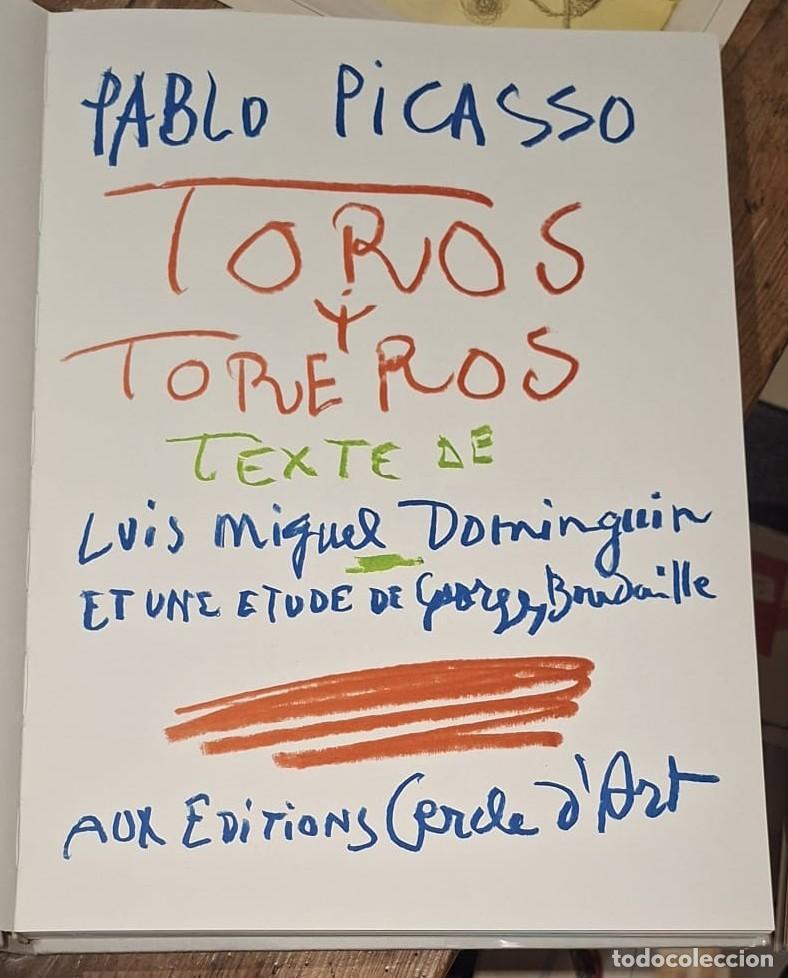 PABLO PiCASSO
TOROS
Y
TOREROS
TEXTE DE
Luis Miguel Dominguin
ET UNE ETUDE DE Georges Boudaille
AUX EDiTiONS Cercle d'Art
todocoleccion